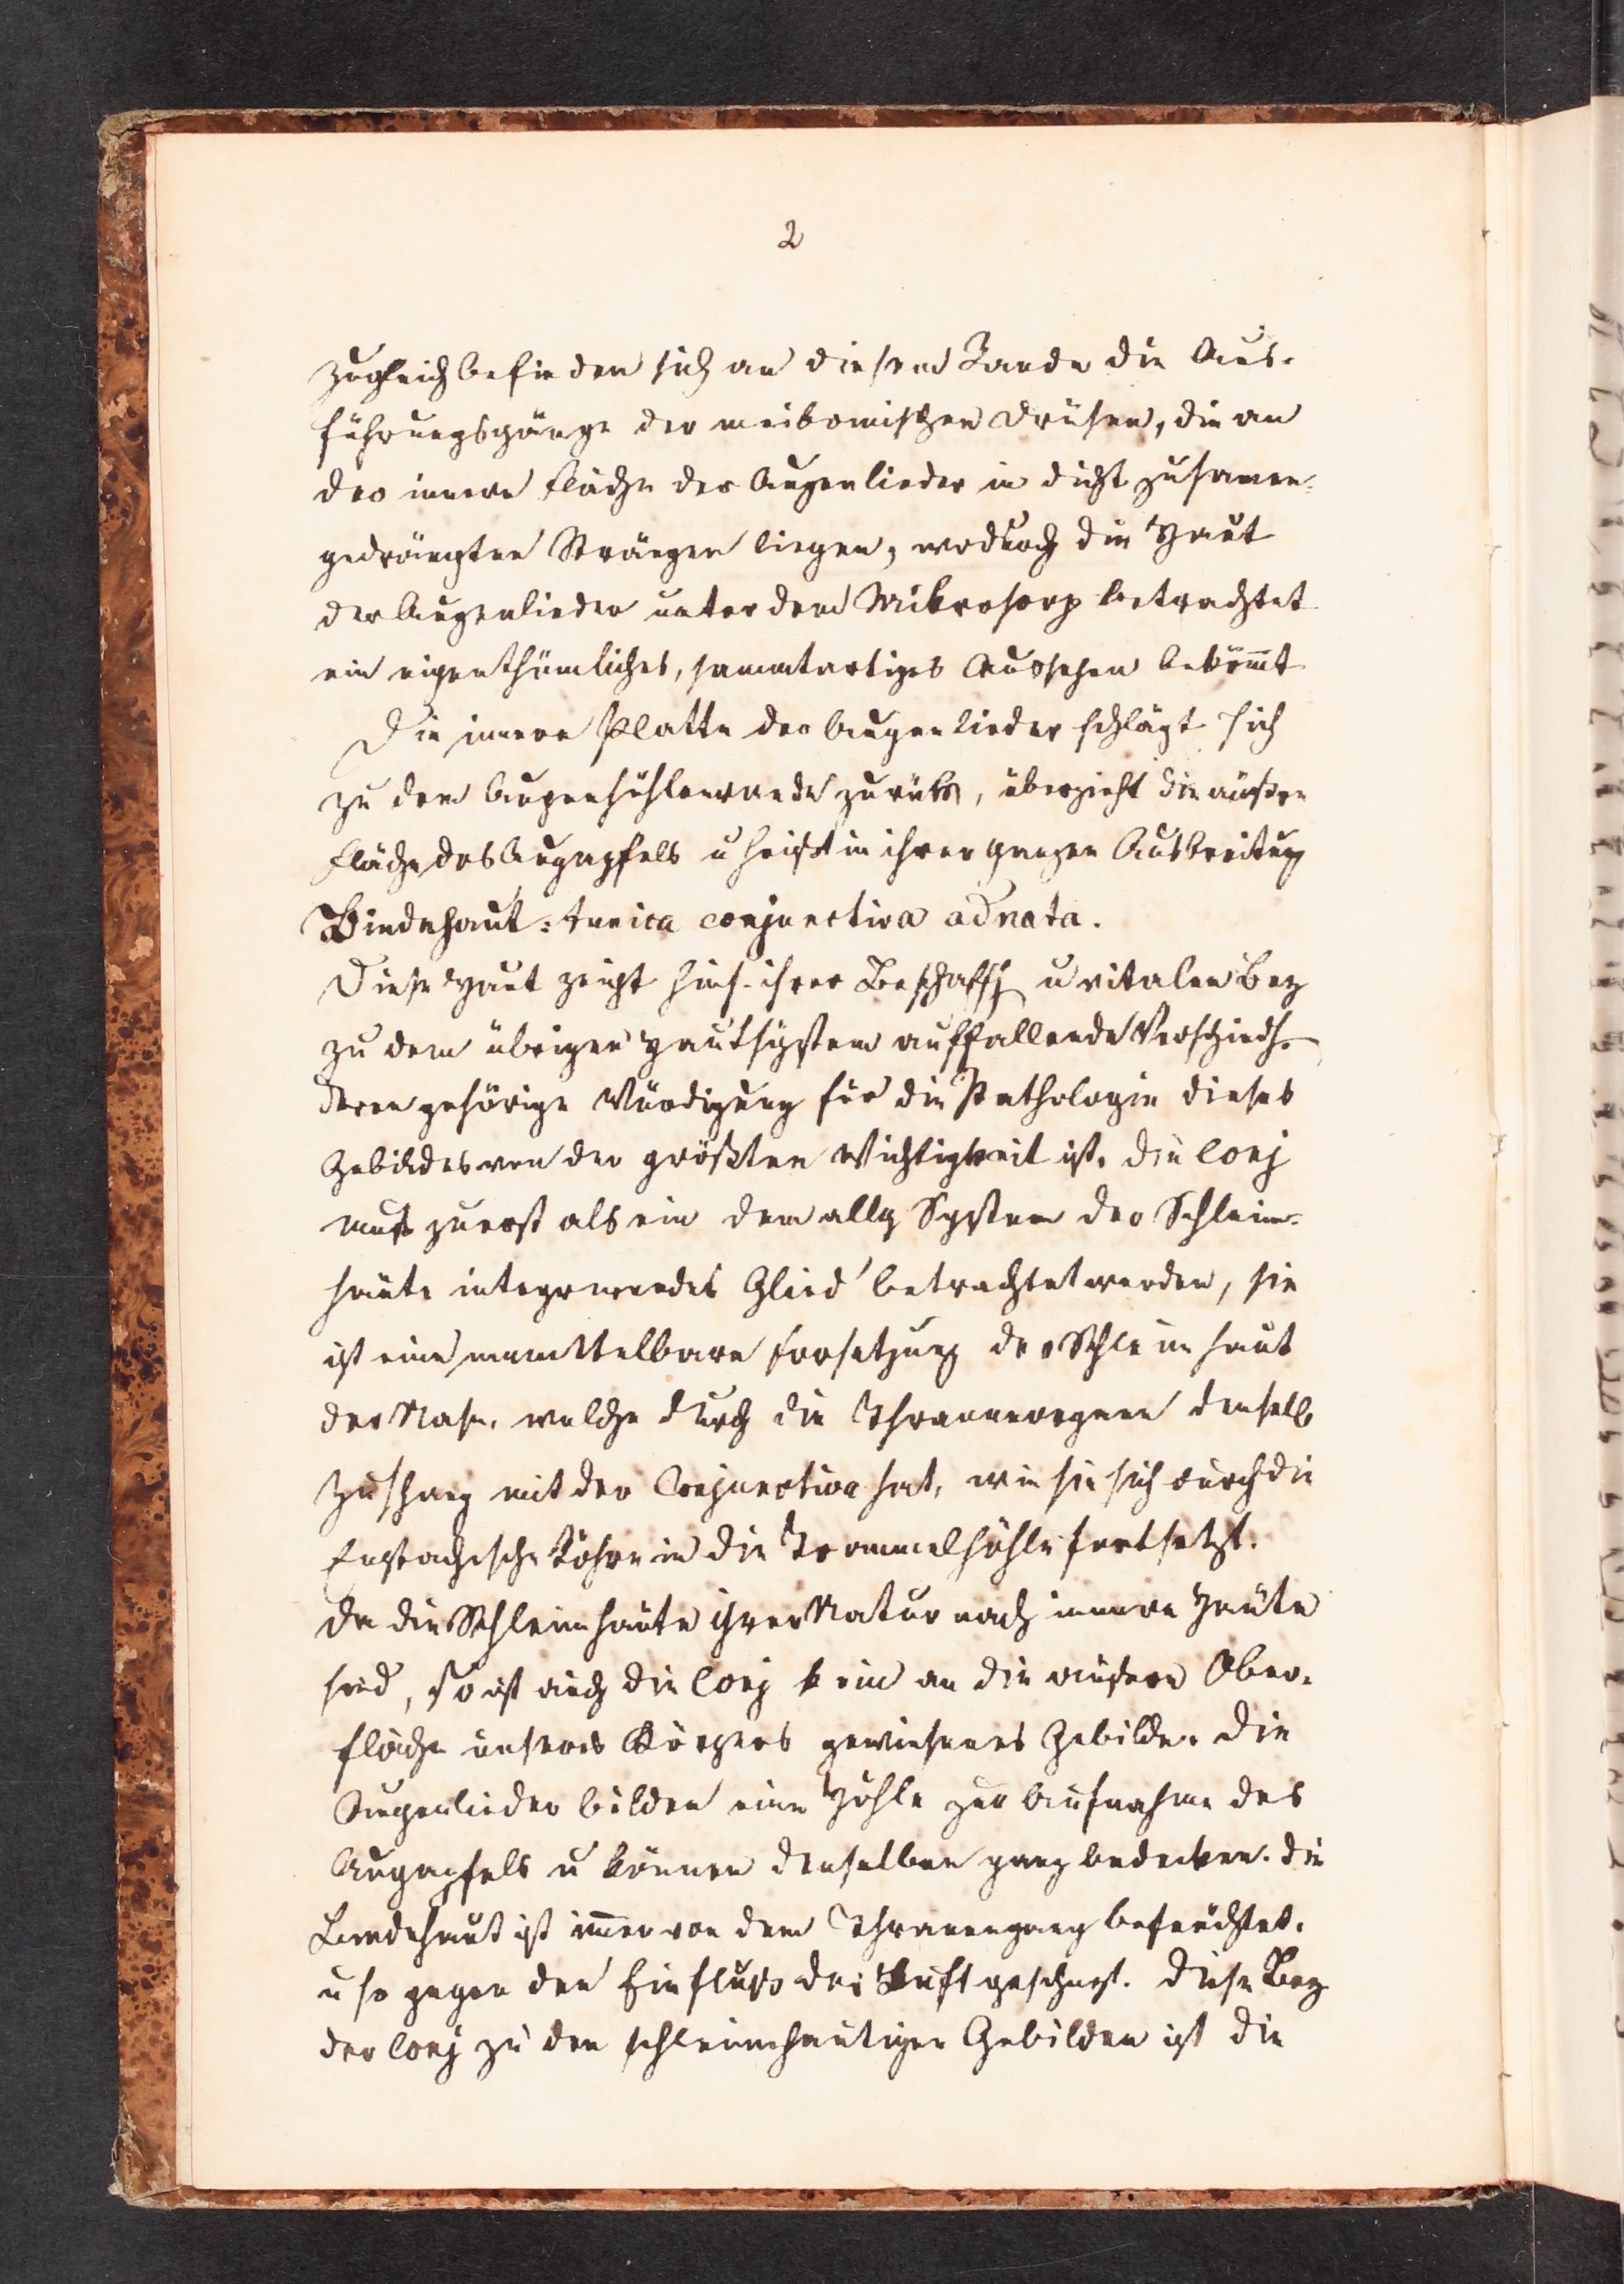 2
Zugleich befinden sich an diesem Rande die Aus-
führungsgänge der meibomischen Drüsen, die an
der innern Fläche der Augenlieder in dicht zusamen-
gedrängten Strängen liegen, wodurch die Haut
der Augenlieder unter dem Mikroscop betrachtet
ein eigenthümliches, sammtartiges Aussehen bekömt
Die innere Platte der Augenlieder schlägt sich
zu dem Augenhöhlenrande zurük, überzieht die äußere
Fläche des Augapfels u heißt in ihrer ganzen Ausbreitung
Bindehaut: tunica conjunctiva adnata.
Diese Haut zeigt hins. ihrer Beschaffh u vitalen Bez
zu dem übrigen Hautsystem auffallende Verschiedh.
deren gehörige Würdigung für die Pathologie dieses
Gebildes von der größten Wichtigkeit ist. Die Conj
muß zuerst als ein dem allg System der Schleim-
häute integrirendes Glied betrachtet werden, sie
ist eine unmittelbare Forsetzung der Schleimhaut
der Nase, welche durch die Thränenorgane denselb
Zushang mit der Conjunctiva hat, wie sie sich durch die
Eustachische Röhre in die Trommelhöhle fortsetzt.
Da die Schleimhäute ihrer Natur nach innere Häute
sind, so ist auch die Conj kein an die äußere Ober-
fläche unseres Körpers gewiesenes Gebilde. Die
Augenlieder bilden eine Höhle zur Aufnahme des
Augapfels u können denselben ganz bedecken. Die
Bindehaut ist imer von dem Thränengang befeuchtet.
u so gegen den Einfluß der Luft geschüzt. Diese Bez
der Conj zu den schleimhäutigen Gebilden ist die